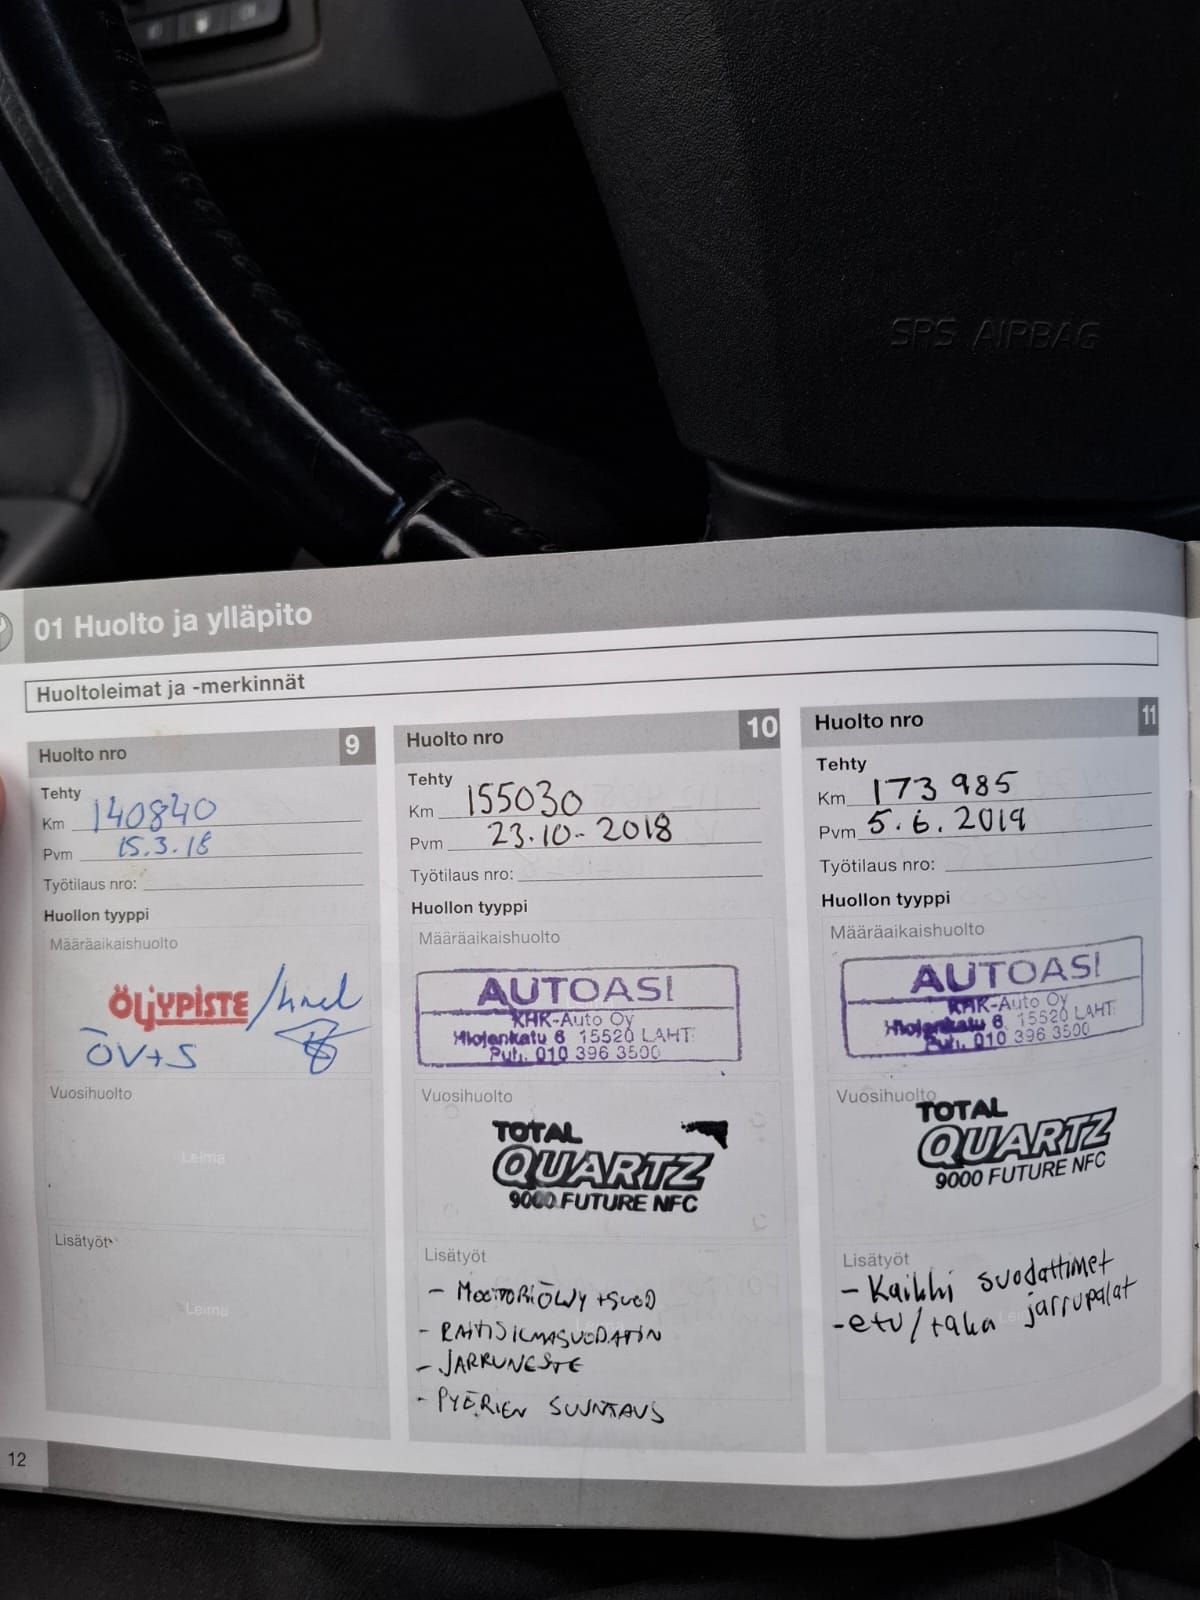 SRS AIRBAG
01 Huolto ja ylläpito
Huoltoleimat ja -merkinnät
Huolto nro 9
Tehty
Km 140840
Pvm 15.3.18
Työtilaus nro:
Huollon tyyppi
Määräaikaishuolto
ÖLJYPISTE
ÖV+S
Vuosihuolto
Leima
Lisätyöt
Leima
Huolto nro 10
Tehty
Km 155030
Pvm 23.10-2018
Työtilaus nro:
Huollon tyyppi
Määräaikaishuolto
AUTOASI
KHK-Auto Oy
Hiojankatu 6 15520 LAHTI
Puh. 010 396 3500
Vuosihuolto
TOTAL
QUARTZ
9000 FUTURE NFC
Lisätyöt
- MOOTTORIÖLJY +SUOD
- RAITISILMASUODATIN
- JARRUNESTE
- PYÖRIEN SUUNTAUS
Huolto nro 11
Tehty
Km 173 985
Pvm 5.6.2019
Työtilaus nro:
Huollon tyyppi
Määräaikaishuolto
AUTOASI
KHK-Auto Oy
Hiojankatu 6 15520 LAHTI
Puh. 010 396 3500
Vuosihuolto
TOTAL
QUARTZ
9000 FUTURE NFC
Lisätyöt
- Kaikki suodattimet
- etu/taka jarrupalat
12